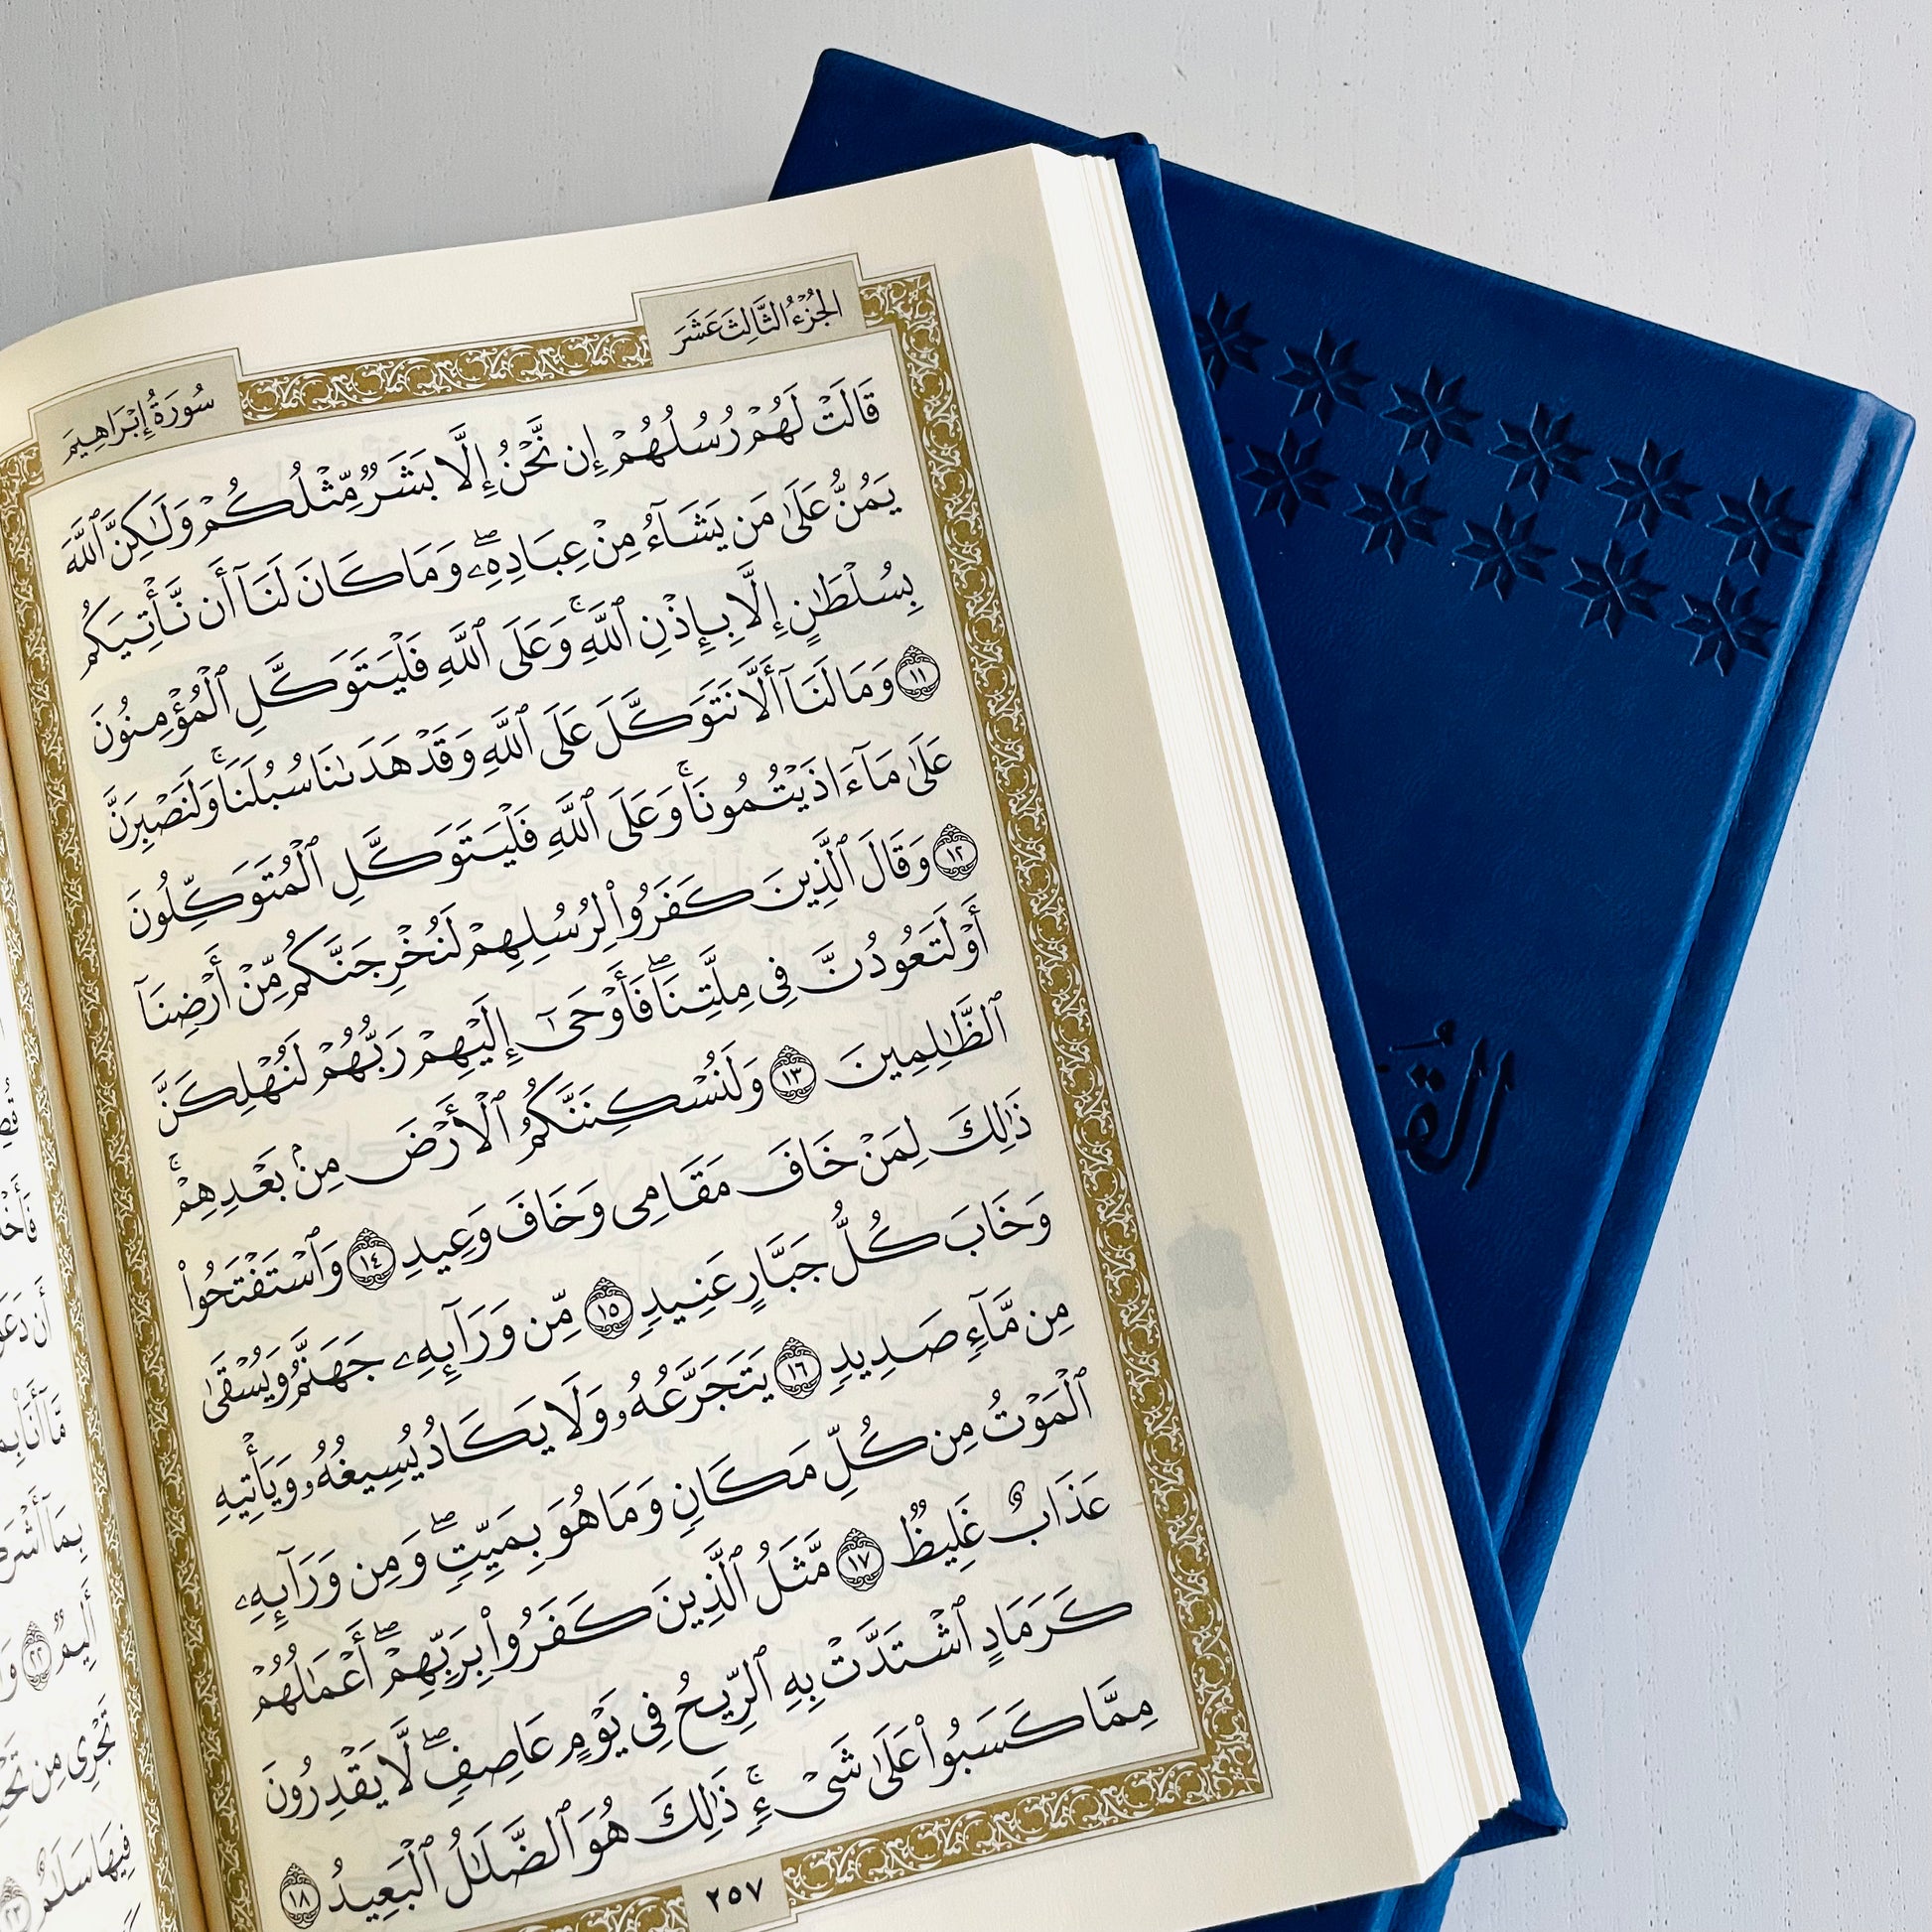 الجُزْءُ الثَّالِثَ عَشَرَ
سُورَةُ إِبْرَاهِيمَ
قَالَتْ لَهُمْ رُسُلُهُمْ إِن نَّحْنُ إِلَّا بَشَرٌ مِّثْلُكُمْ وَلَٰكِنَّ ٱللَّهَ
يَمُنُّ عَلَىٰ مَن يَشَآءُ مِنْ عِبَادِهِۦۖ وَمَا كَانَ لَنَآ أَن نَّأْتِيَكُم
بِسُلْطَٰنٍ إِلَّا بِإِذْنِ ٱللَّهِۚ وَعَلَى ٱللَّهِ فَلْيَتَوَكَّلِ ٱلْمُؤْمِنُونَ
١١ وَمَا لَنَآ أَلَّا نَتَوَكَّلَ عَلَى ٱللَّهِ وَقَدْ هَدَىٰنَا سُبُلَنَاۚ وَلَنَصْبِرَنَّ
عَلَىٰ مَآ ءَاذَيْتُمُونَاۚ وَعَلَى ٱللَّهِ فَلْيَتَوَكَّلِ ٱلْمُتَوَكِّلُونَ
١٢ وَقَالَ ٱلَّذِينَ كَفَرُوا۟ لِرُسُلِهِمْ لَنُخْرِجَنَّكُم مِّنْ أَرْضِنَآ
أَوْ لَتَعُودُنَّ فِى مِلَّتِنَاۖ فَأَوْحَىٰٓ إِلَيْهِمْ رَبُّهُمْ لَنُهْلِكَنَّ
ٱلظَّٰلِمِينَ ١٣ وَلَنُسْكِنَنَّكُمُ ٱلْأَرْضَ مِنۢ بَعْدِهِمْۚ
ذَٰلِكَ لِمَنْ خَافَ مَقَامِى وَخَافَ وَعِيدِ ١٤ وَٱسْتَفْتَحُوا۟
وَخَابَ كُلُّ جَبَّارٍ عَنِيدٍ ١٥ مِّن وَرَآئِهِۦ جَهَنَّمُ وَيُسْقَىٰ
مِن مَّآءٍ صَدِيدٍ ١٦ يَتَجَرَّعُهُۥ وَلَا يَكَادُ يُسِيغُهُۥ وَيَأْتِيهِ
ٱلْمَوْتُ مِن كُلِّ مَكَانٍ وَمَا هُوَ بِمَيِّتٍۖ وَمِن وَرَآئِهِۦ
عَذَابٌ غَلِيظٌ ١٧ مَّثَلُ ٱلَّذِينَ كَفَرُوا۟ بِرَبِّهِمْۖ أَعْمَٰلُهُمْ
كَرَمَادٍ ٱشْتَدَّتْ بِهِ ٱلرِّيحُ فِى يَوْمٍ عَاصِفٍۖ لَّا يَقْدِرُونَ
مِمَّا كَسَبُوا۟ عَلَىٰ شَىْءٍۚ ذَٰلِكَ هُوَ ٱلضَّلَٰلُ ٱلْبَعِيدُ ١٨
٢٥٧
أَلِيمٌ ٢٢
تَجْرِى مِن
فِيهَا سَلَٰمٌ ٢٣